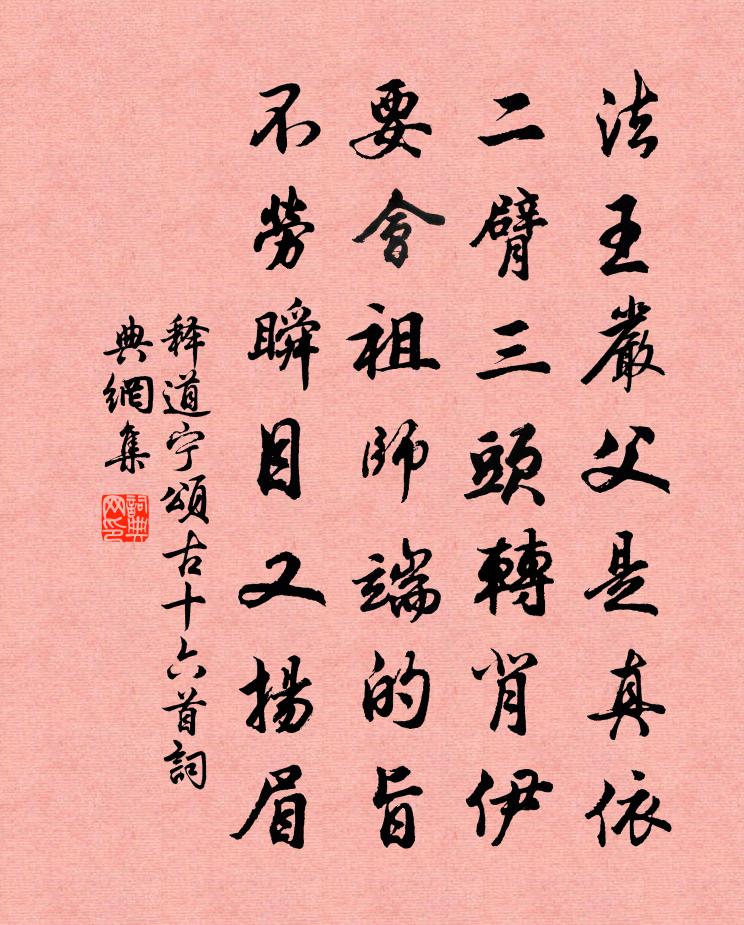 法王嚴父是真依
二臂三頭轉背伊
要會祖師端的旨
不勞瞬目又揚眉
释道宁頌古十六首詞
典網集
詞典網印